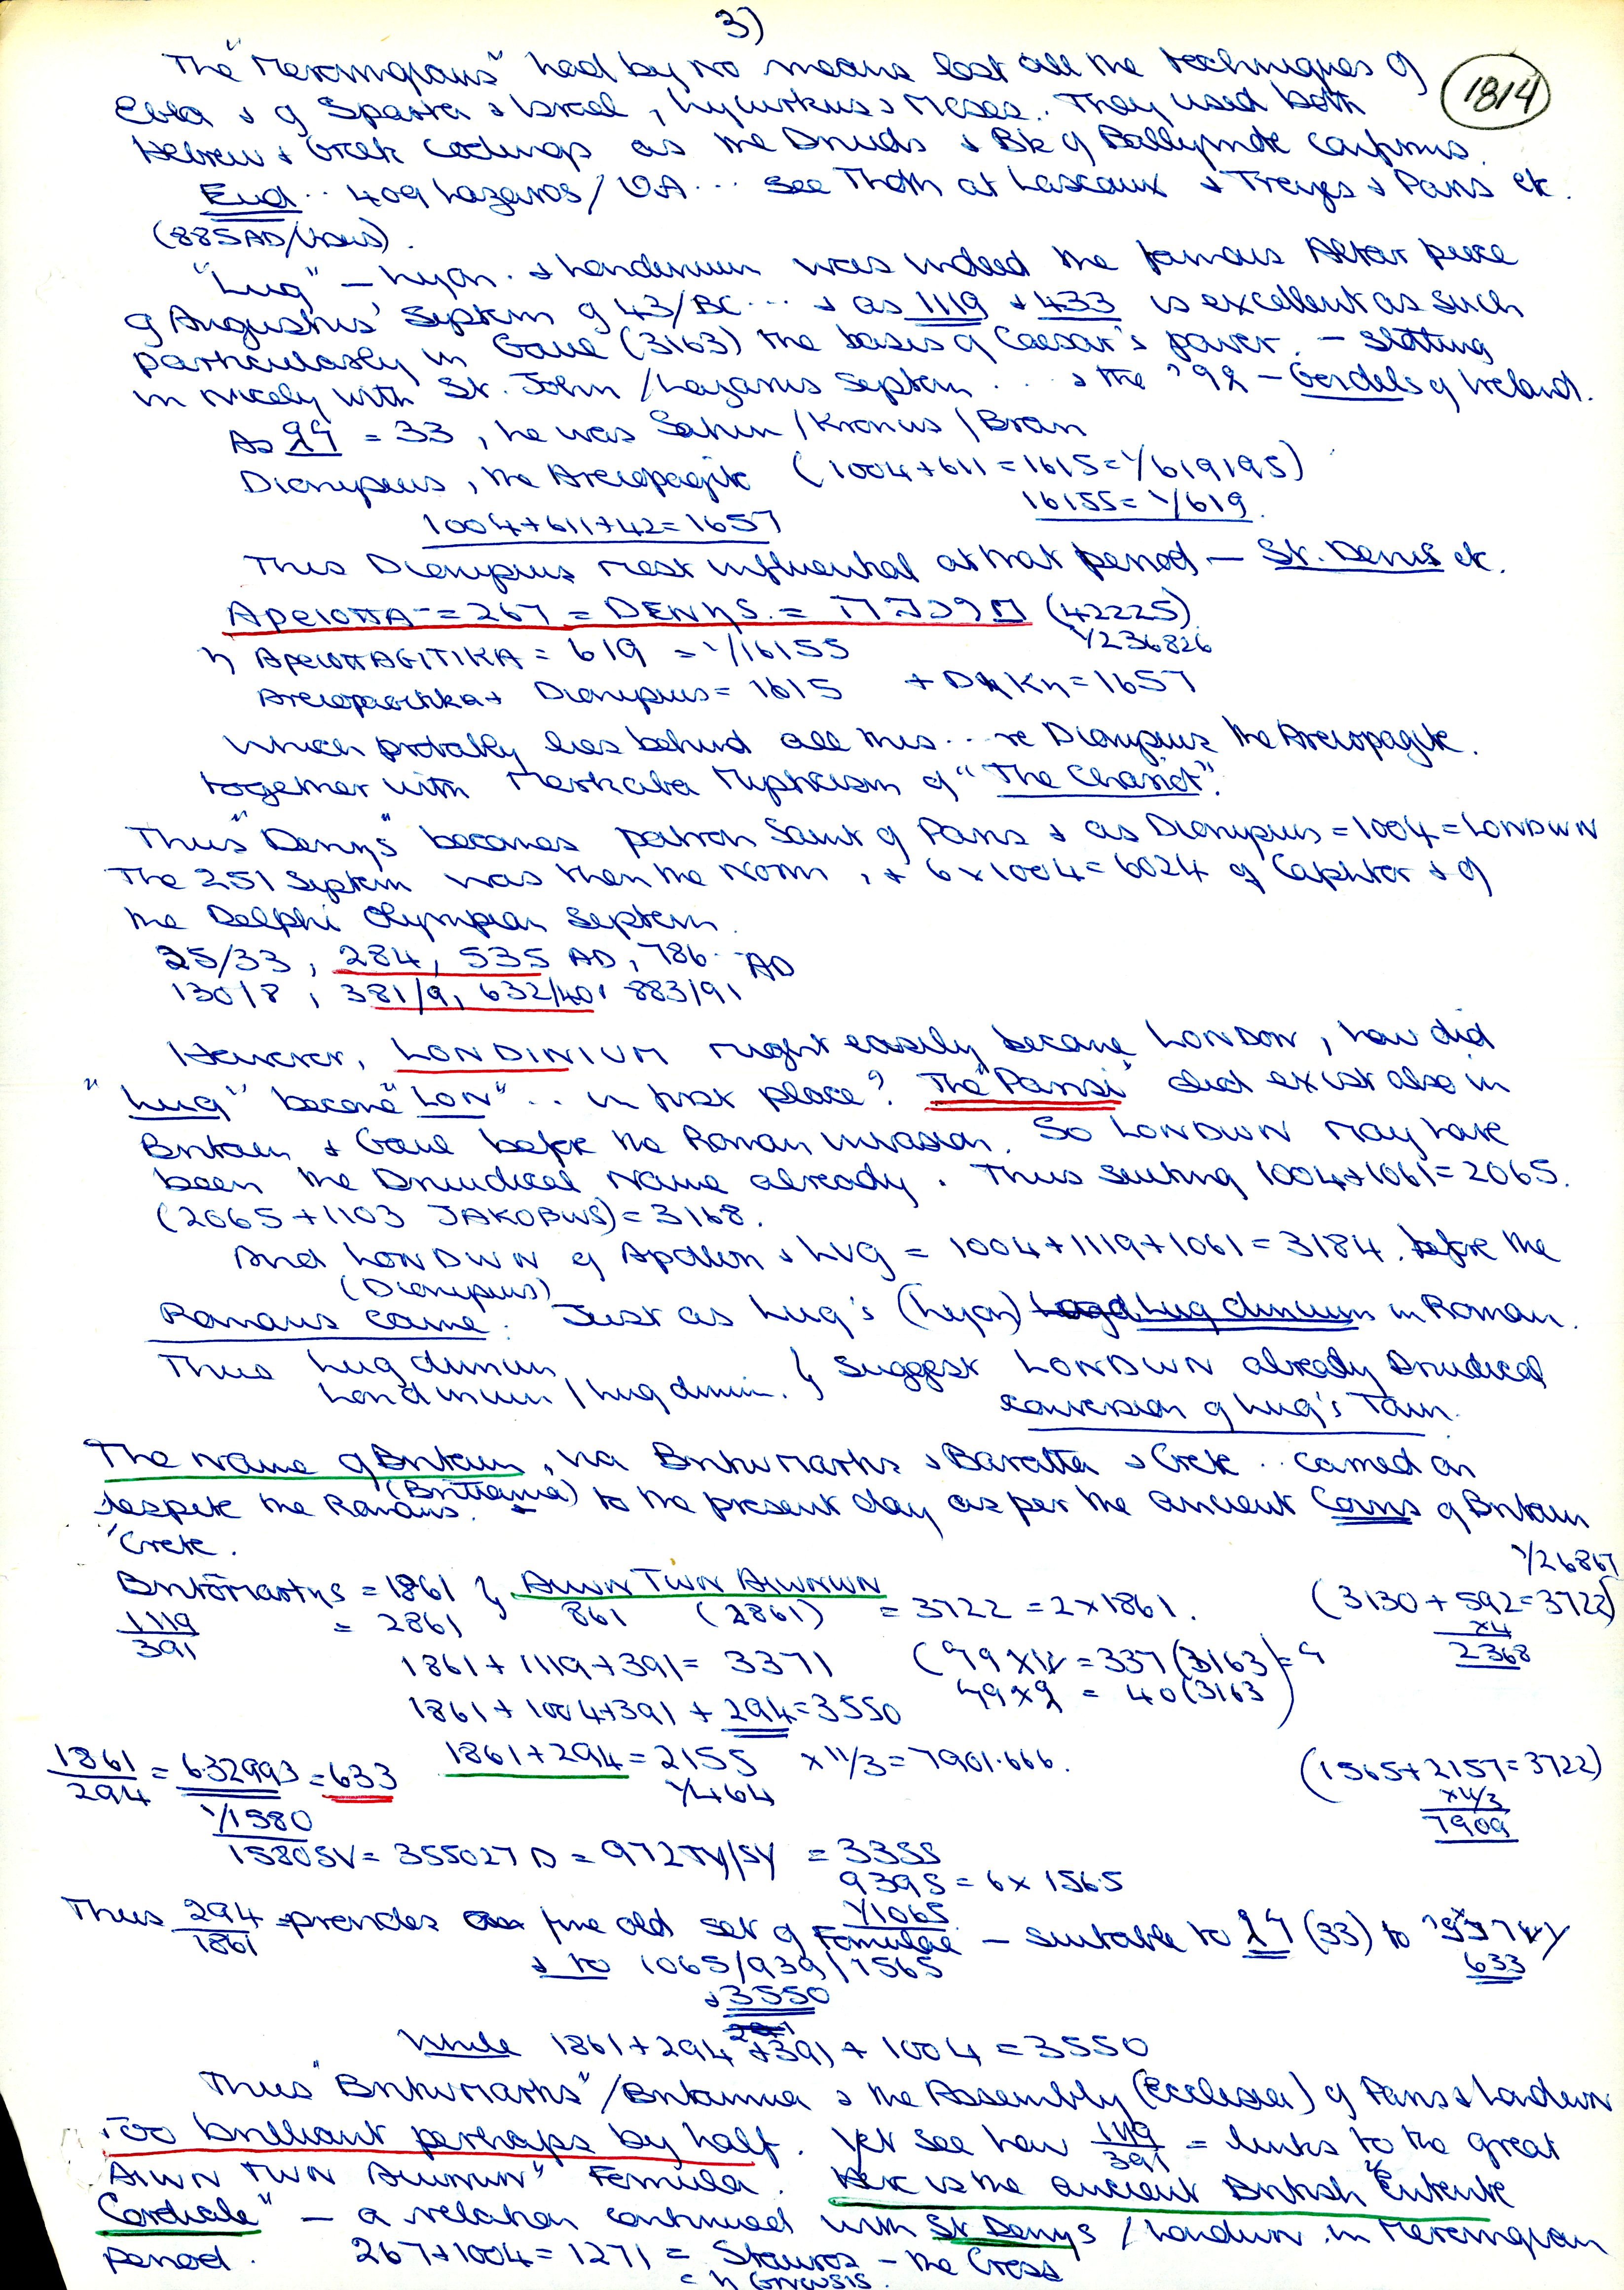 3)
1814
The "Merovingians" had by no means lost all the techniques of
Ebla & of Sparta & Israel, Lycurkus & Moses. They used both
Hebrew & Greek codings as the Druids & Bk of Ballymote confirms.
End .. 409 Lazaros/ OA ... see Thoth at Lascaux & Troyes & Paris etc.
(885AD/
"Lug" – Lyon. & Londinium was indeed the famous Altar piece
of Augustus' Septem of 43/BC ... & as 1119 & 433 is excellent as such
particularly in Gaul (3163) the basis of Caesar's power. – slotting
in nicely with St. John /Lazarus Septem ... & the – Goidels of Ireland.
As = 33, he was Saturn /Kronus /Bran
Dionysius, the Areiopagite (1004+611=1615=1/619195)
16155=1/619.
1004+611+42=1657
Thus Dionysius most influential at that period – St. Denis etc.
ApeIOΠA = 267 = DENYS. = (42225)
1/236826
η ApeIOΠAGITIKA = 619 = 1/16155
Areiopagitika + Dionysius = 1615 + DηKη = 1657
which probably lies behind all this .. re Dionysius the Areiopagite.
together with Merkaba Mysticism of "The Chariot".
Thus "Denys" becomes patron Saint of Paris & as Dionysius = 1004 = LONDWN
The 251 Septem was then the norm, & 6x1004=6024 of Caphtor & of
the Delphi Olympian Septem.
25/33, 284, 535 AD, 786 AD
130/8, 381/9, 632/40, 883/91
However, LONDINIUM might easily become LONDON, how did
"Lug" become "LON" .. in first place? The "Parisi" did exist also in
Britain & Gaul before the Roman invasion. So LONDWN may have
been the Druidical name already. Thus suiting 1004+1061=2065.
(2065+1103 JAKOBWS)=3168.
And LONDWN of Apollon & LVG = 1004+1119+1061=3184. before the
(Dionysius)
Romans came. Just as Lug's (Lyon) Lug dinium in Roman.
Thus Lug dinium
Londinium / Lug dinium. } suggest LONDWN already Druidical
conversion of Lug's Town.
The name of Britain, via Britomartis & Baratta & Crete .. carried on
(Brittania)
despite the Romans. to the present day as per the ancient Coins of Britain
"Crete.
1/26867
Britomartys = 1861 } AIWN TWN AIWNWN
1119/391 = 2861 861 (2861) = 3722 = 2x1861. (3130+592=3722)
x4
2368
1861+1119+391= 3371 = 337(3163)
1861+1004+391+294=3550 = 40(3163
1861/294 = 6.32993 = 633 1861+294=2155 x 11/3=7901.666. (1565+2157=3722)
1/1580 1/464 x11/3
7909
1580SV= 355027 D = 972TY/SY = 3355
9395 = 6x1565
1/1065
Thus 294/1861 provides fine old set of Formulae – suitable to (33) to
633
& to 1065/939/1565
& 3550
While 1861+294+391+1004=3550
Thus "Britomartis"/Britannia & the Assembly (Ecclesia) of Paris & Londwn
Too brilliant perhaps by half. Yet see how 1119/391 = links to the great
AIWN TWN AIWNWN" Formula. Here is the ancient British "Entente
Cordiale" – a relation continued with St Denys /Londwn in Merovingian
period. 267+1004=1271 = Stauros – the Cross
= η Gnwsis.